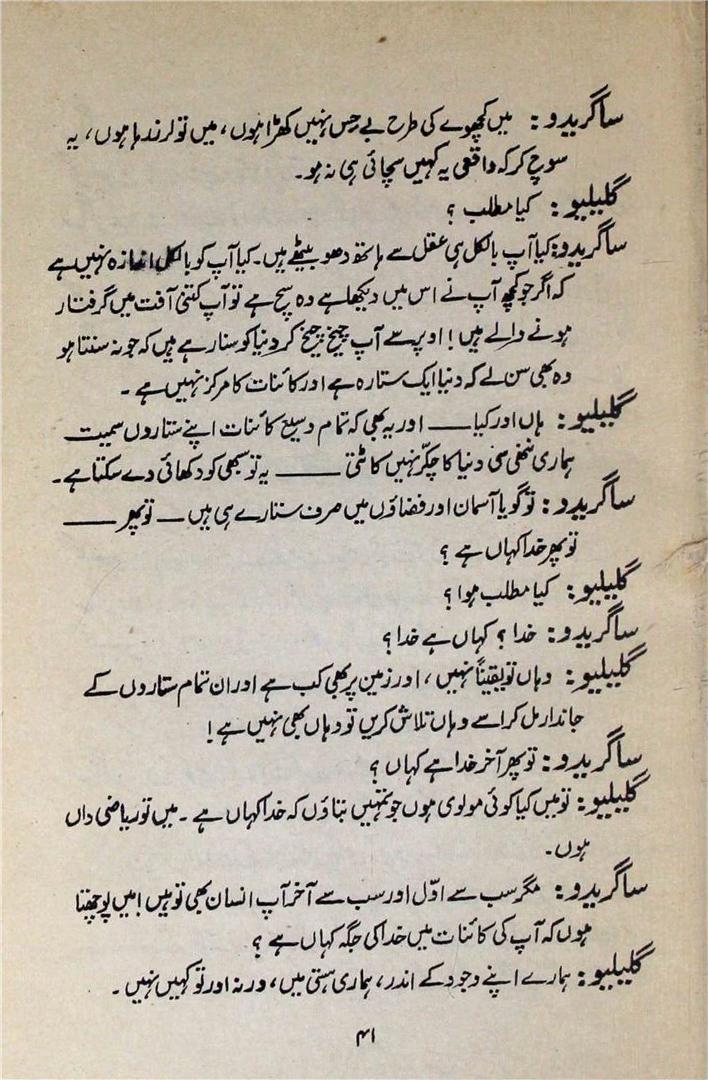 ساگریدو: میں کچھوے کی طرح بے حِس نہیں کھڑا ہوں، میں تو لرز رہا ہوں، یہ
سوچ کر کہ واقعی یہ کہیں سچائی ہی نہ ہو۔
گلیلیو: کیا مطلب؟
ساگریدو: کیا آپ بالکل ہی عقل سے ہاتھ دھو بیٹھے ہیں۔ کیا آپ کو بالکل اندازہ نہیں ہے
کہ اگر جو کچھ آپ نے اس میں دیکھا ہے وہ سچ ہے تو آپ کتنی آفت میں گرفتار
ہونے والے ہیں! اوپر سے آپ چیخ چیخ کر دنیا کو سنا رہے ہیں کہ جو نہ سنتا ہو
وہ بھی سن لے کہ دنیا ایک ستارہ ہے اور کائنات کا مرکز نہیں ہے۔
گلیلیو: ہاں اور کیا ــــــ اور یہ بھی کہ تمام وسیع کائنات اپنے ستاروں سمیت
ہماری ننھی سی دنیا کا چکّر نہیں کاٹتی ــــــ یہ تو سبھی کو دکھائی دے سکتا ہے۔
ساگریدو: تو گویا آسمان اور فضاؤں میں صرف ستارے ہی ہیں ــــ تو پھر ــــــ
تو پھر خدا کہاں ہے؟
گلیلیو: کیا مطلب ہوا؟
ساگریدو: خدا؟ کہاں ہے خدا؟
گلیلیو: وہاں تو یقیناً نہیں، اور زمین پر بھی کب ہے اور ان تمام ستاروں کے
جاندار مل کر اسے وہاں تلاش کریں تو وہاں بھی نہیں ہے!
ساگریدو: تو پھر آخر خدا ہے کہاں؟
گلیلیو: تو میں کیا کوئی مولوی ہوں جو تمہیں بتاؤں کہ خدا کہاں ہے۔ میں تو ریاضی داں
ہوں۔
ساگریدو: مگر سب سے اوّل اور سب سے آخر آپ انسان بھی تو ہیں! میں پوچھتا
ہوں کہ آپ کی کائنات میں خدا کی جگہ کہاں ہے؟
گلیلیو: ہمارے اپنے وجود کے اندر، ہماری ہستی میں، ورنہ اور تو کہیں نہیں۔
۴۱